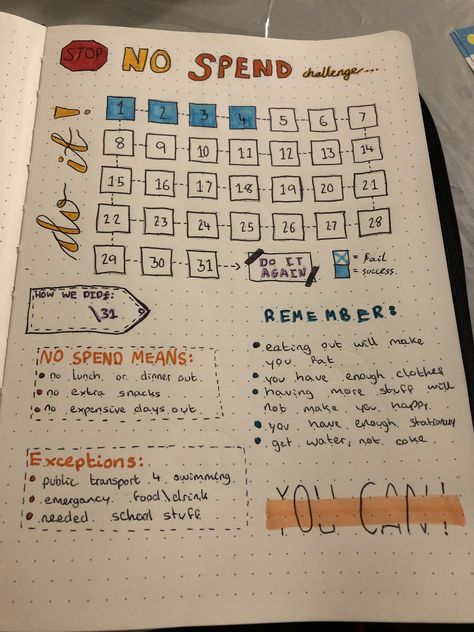 STOP NO SPEND challenge...
do it!
1 2 3 4 5 6 7
8 9 10 11 12 13 14
15 16 17 18 19 20 21
22 23 24 25 26 27 28
29 30 31 DO IT
AGAIN
= Fail
= success.
HOW WE DID?:
\31
REMEMBER:
eating out will make
you fat
you have enough clothes
having more stuff will
not make you happy.
you have enough stationary
get water, not coke
NO SPEND MEANS:
no lunch or dinner out.
no extra snacks
no expensive days out
Exceptions:
public transport 4 swimming.
emergancy food\drink
needed school stuff
YOU CAN!